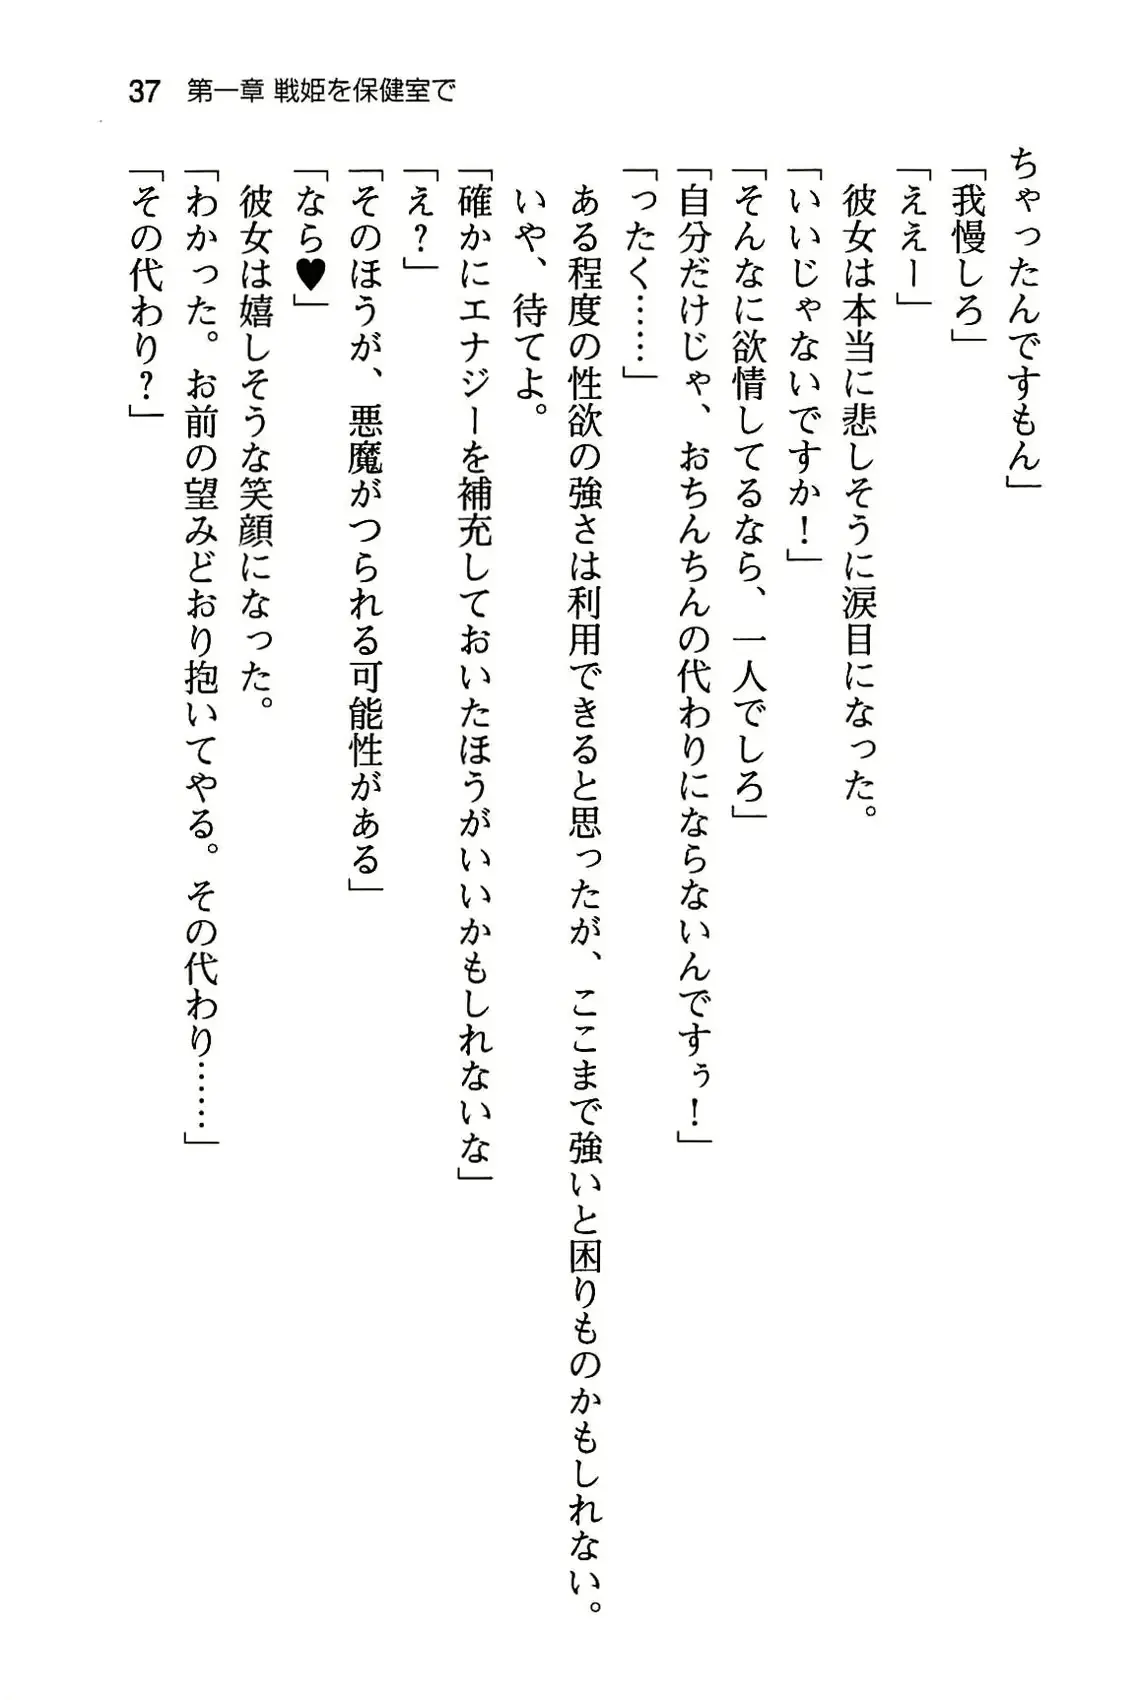 37 第一章 戦姫を保健室で
ちゃったんですもん」
「我慢しろ」
「ええー」
彼女は本当に悲しそうに涙目になった。
「いいじゃないですか！」
「そんなに欲情してるなら、一人でしろ」
「自分だけじゃ、おちんちんの代わりにならないんですぅ！」
「ったく……」
ある程度の性欲の強さは利用できると思ったが、ここまで強いと困りものかもしれない。
いや、待てよ。
「確かにエナジーを補充しておいたほうがいいかもしれないな」
「え？」
「そのほうが、悪魔がつられる可能性がある」
「なら♥」
彼女は嬉しそうな笑顔になった。
「わかった。お前の望みどおり抱いてやる。その代わり……」
「その代わり？」